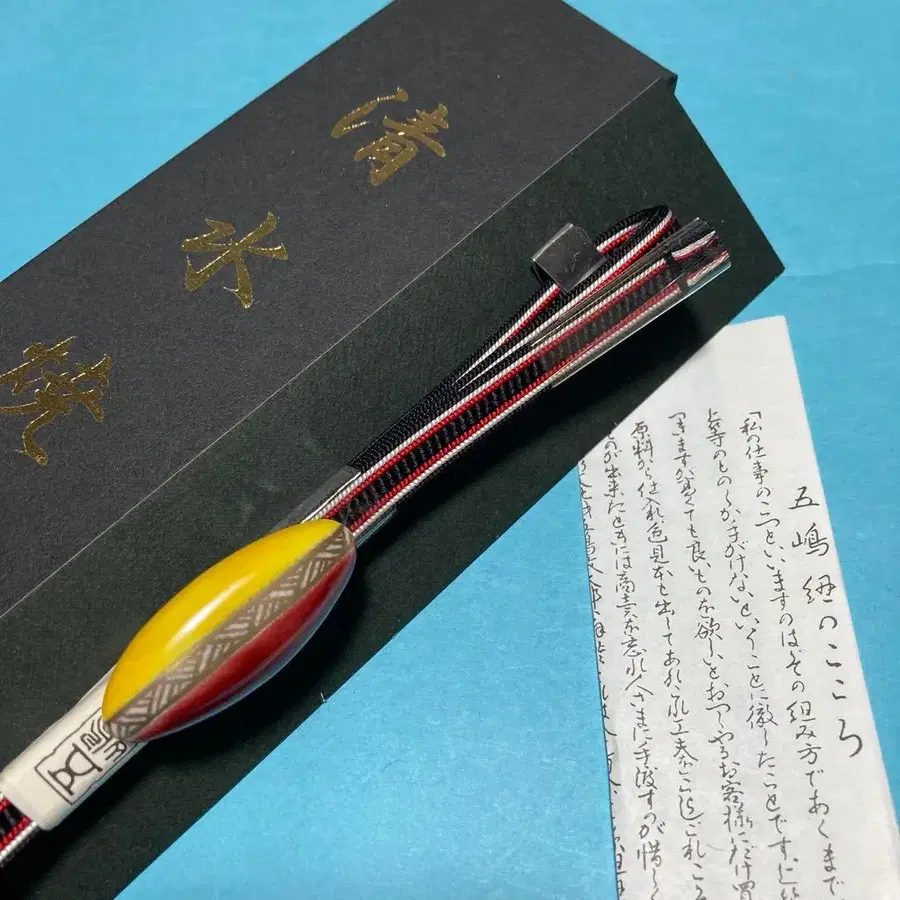 清水焼
五嶋紐のこころ
「私の仕事のこつといいますのはその組み方であくまで
上等のものしか手がけないということに徹したことです
ますが高くても良いものを欲しいとおっしゃるお客様にだけ買
原料から仕入れ色見本も出してあれこれ工夫をこらしこれこそ
ものが出来たときには商売を忘れ人さまに手渡すのが惜しく
五